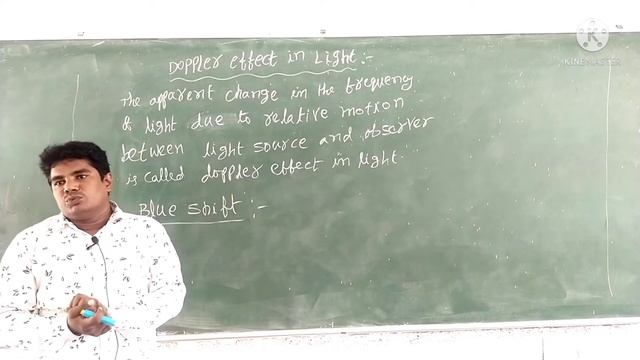 Doppler effect in Light:-
The apparent change in the frequency
of light due to relative motion
between light source and observer
is called doppler effect in light.
Blue shift :-
KINEMASTER